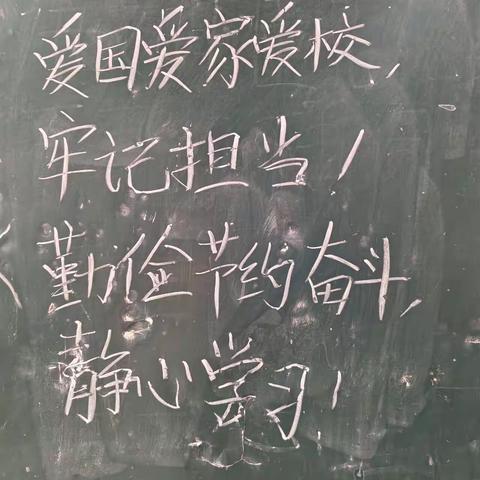 爱国爱家爱校,
牢记担当!
勤俭节约奋斗,
静心学习!